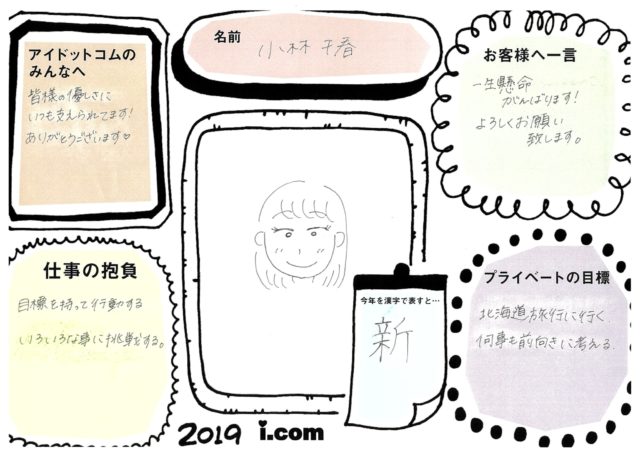 アイドットコムの
みんなへ
皆様の優しさに
いつも支えられてます!
ありがとうございます♡
名前
小林 千春
お客様へ一言
一生懸命
がんばります!
よろしくお願い
致します。
仕事の抱負
目標を持って行動する
いろいろな事に挑戦する。
今年を漢字で表すと…
新
プライベートの目標
北海道旅行に行く
何事も前向きに考える
2019 i.com